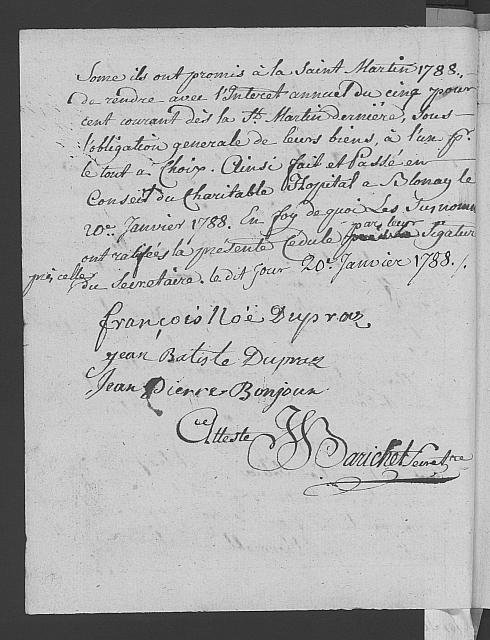 Some ils ont promis à la Saint Martin 1788.,
de rendre avec l'Interet annuel du cinq pour
cent courant dès la St. Martin derniére, sous
l'obligation generale de leurs biens, à l'un pr.
le tout a Choix. Ainsi fait et Passé en
Conseil du Charitable Hopital a Blonay le
20e. Janvier 1788. En foy de quoi Les Surnommés
par leur
ont ratifées la présente Cedule Sigature
prés celles
du Secretaire. le dit jour 20e. Janvier 1788./.
françois Noë Dupraz
jean Batiste Dupraz
Jean Pierre Bonjour
Atteste JJ Barichet Secret.re